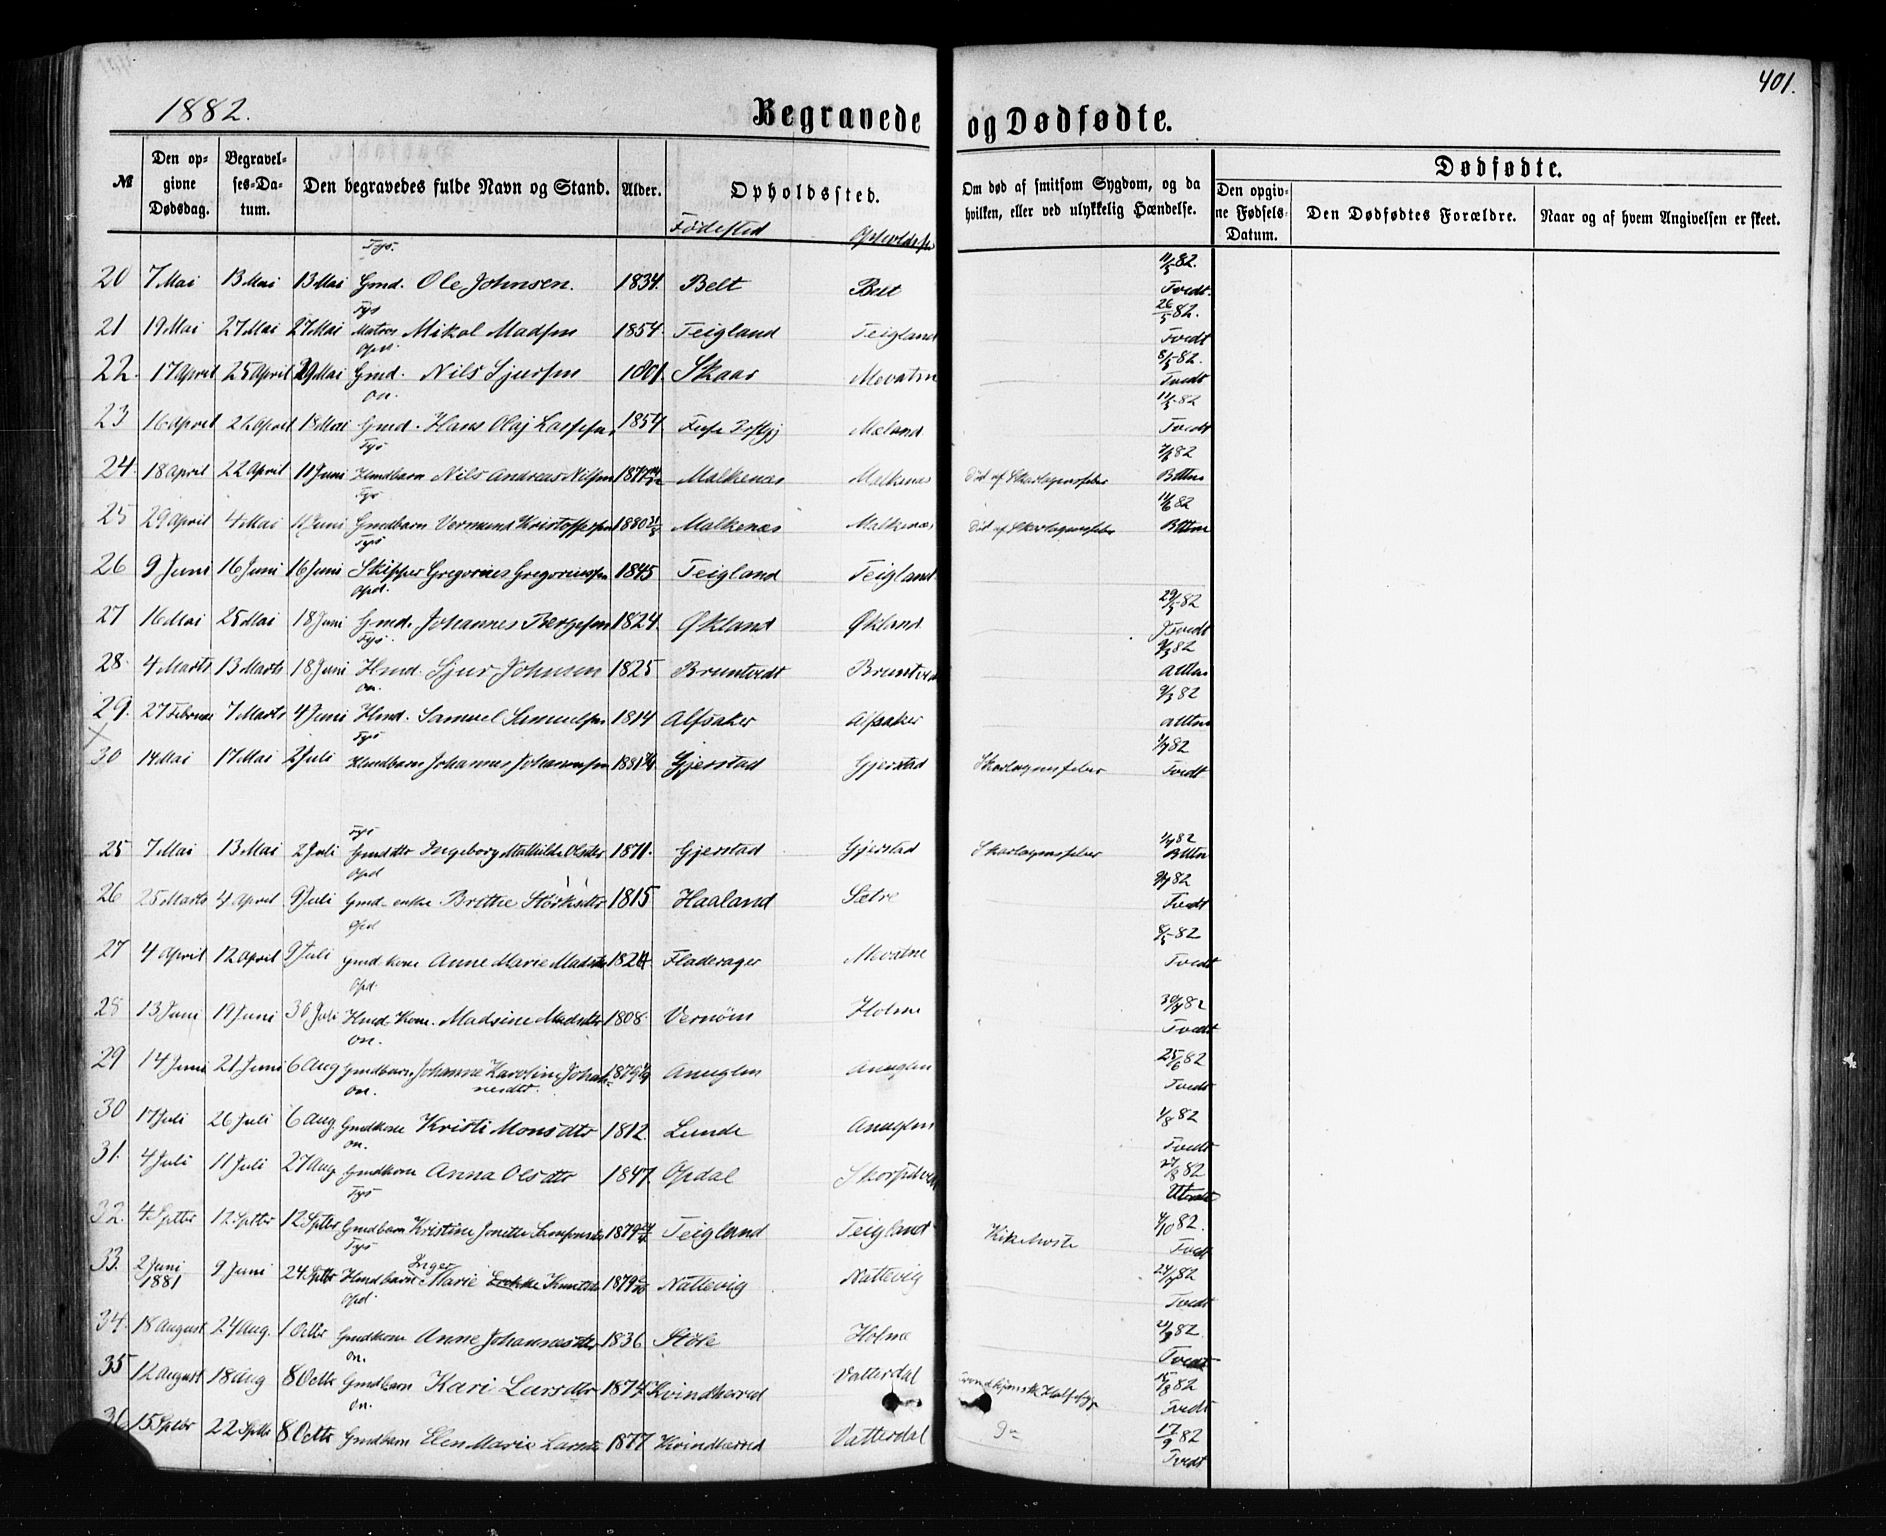 401.
1882.
Begravede og Dødfødte.
№
Den opgivne Dødsdag.
Begravelses-Datum.
Den begravedes fulde Navn og Stand.
Alder.
Opholdssted.
Fødested Opholdsste
Om død af smitsom Sygdom, og da hvilken, eller ved ulykkelig Hændelse.
Dødfødte.
Den opgivne Fødsels-Datum.
Den Dødfødtes Forældre.
Naar og af hvem Angivelsen er skeet.
Tys.
20 7 Mai 13 Mai 13 Mai Gmd. Ole Johnsen. 1834. Belt Belt 11/5 82. Tvedt.
Tys
21 19 Mai 27 Mai 27 Mai Mikal Madsen 1854. Teigland Teigland 26/5 82. Tvedt
Opd.
22. 17 April 25 April 29 Mai Gmd. Nils Sjursen 1801. Skaar Mevatne 8/5 82. Tvedt
On.
23 16 April 18 Mai Gmd. Hans Olaj 1854. Fuse Mæland 11/5 82 Tvedt
Tys
24. 18 April 22 April 11 Juni Hmdbarn Nils Andreas Nilsen Malkenæs Malkenæs Død af Skarlagensfeber 82
Tys
25 29 April 4 Mai 11 Juni Gmdbarn Vermund Kristoffersen 1880 Malkenæs Malkenæs Død af Skarlagensfeber 82
Tys
26 9 Juni 16 Juni 16 Juni Skipper Gregorius Gregoriussen 1845 Teigland Teigland
Opd.
27 16 Mai 25 Mai 18 Juni Gmd. Johannes Bergesen 1824. Økland Økland 29/5 82 Tvedt
Tys.
28. 4 Marts 13 Marts 18 Juni Hmd. Sjur Johnsen 1825 Bruntvedt Bruntvedt 82
On.
29. 27 Februar 7 Marts 4 Juni Hmd. Samuel Samuelsen 1814 Alfsaker Alfsaker 82
Tys
30 14 Mai 17 Mai 2 Juli Hmdbarn Johannes Johannessen 1881 Gjerstad Gjerstad Skarlagensfeber 82 Tvedt
Tys
25 7 Mai 13 Mai 2 Juli Gmddtr Ingeborg Mathilde Olsdtr 1871. Gjerstad Gjerstad Skarlagensfeber 82
Opd
26 25 Marts 4 April 9 Juli Gmd enke Brithe Størksdtr 1815 Haaland Sætre 82 Tvedt
Opd
27 4 April 12 April 9 Juli Gmd. kone Anne Marie Madsdtr Fladerager Mevatne 8/5 82 Tvedt
Opd.
28 13 Juni 19 Juni 30 Juli Hmd. Kone. Madsine Madsdtr 1808. Vernøen Holme 82 Tvedt
On.
29 14 Juni 21 Juni 6 Aug Gmdbarn. Johanne Karoline Johannesdtr. Anuglen Anuglen 25/6 82 Tvedt
On.
30 17 Juli 26 Juli 6 Aug. Gmdkone Kristi Monsdtr 1812. Lunde Anuglen 1/8 82 Tvedt
On.
31. 4 Juli 11 Juli 27 Aug Gmdkone Anna Olsdtr 1847. Opdal 27/8 82
Tys
32. 4 Septbr 12 Septbr 12 Septbr Gmdbarn Kristine Jonette 1879 Teigland Teigland Kikehoste 82. Tvedt
Tys
33. 2 Juni 1881 9 Juni 24 Septbr Hmdbarn Inger Marie Knutsdtr 1879 Nattevig Nattevig 82 Tvedt
Opd.
34. 18 August 24 Aug. 1 Octbr Gmdkone Anne Johannesdtr 1836 Støle Holme 82. Tvedt
On.
35 12 August 18 Aug 8 Octbr Gmdbarn Kari Larsdtr 1874. Kvindherred Vatterdal Trondhjemsk Halssyge 15/8 82 Tvedt
On.
36 15 Septbr 22 Septbr 8 Octbr Gmdbarn Elen Marie Larsdtr 1877 Kvindherred Vatterdal 17/9 82 Tvedt